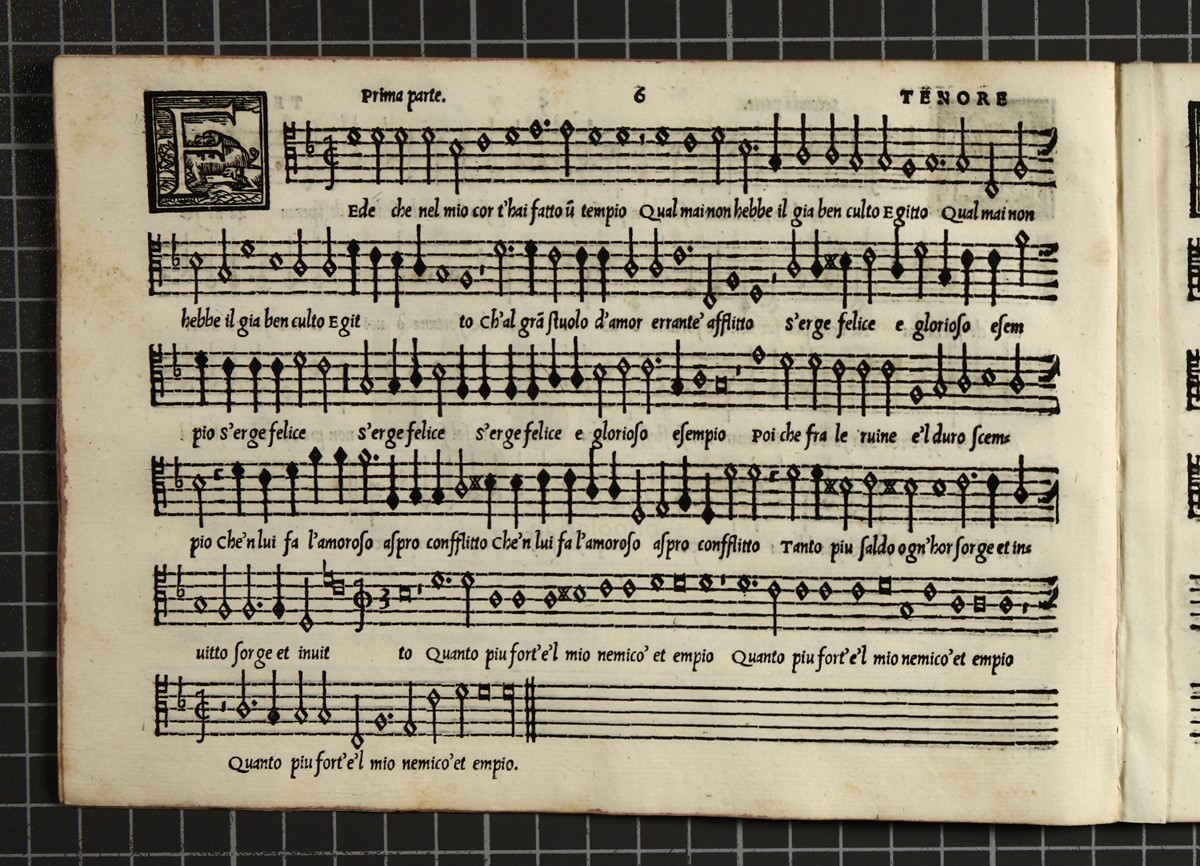 Prima parte. 6 TENORE
FEde che nel mio cor t'hai fatto ũ tempio Qual mai non hebbe il gia ben culto Egitto Qual mai non
hebbe il gia ben culto Egit to Ch'al grã ſtuolo d'amor errante' afflitto s'erge felice e glorioſo eſem
pio s'erge felice s'erge felice s'erge felice e glorioſo eſempio Poi che fra le ruine e'l duro ſcem=
pio Che'n lui fa l'amoroſo aſpro confflitto Che'n lui fa l'amoroſo aſpro confflitto Tanto piu ſaldo ogn'hor ſorge et in=
uitto ſorge et inuit to Quanto piu fort'e'l mio nemico' et empio Quanto piu fort'e'l mio nemico' et empio
Quanto piu fort'e'l mio nemico' et empio.